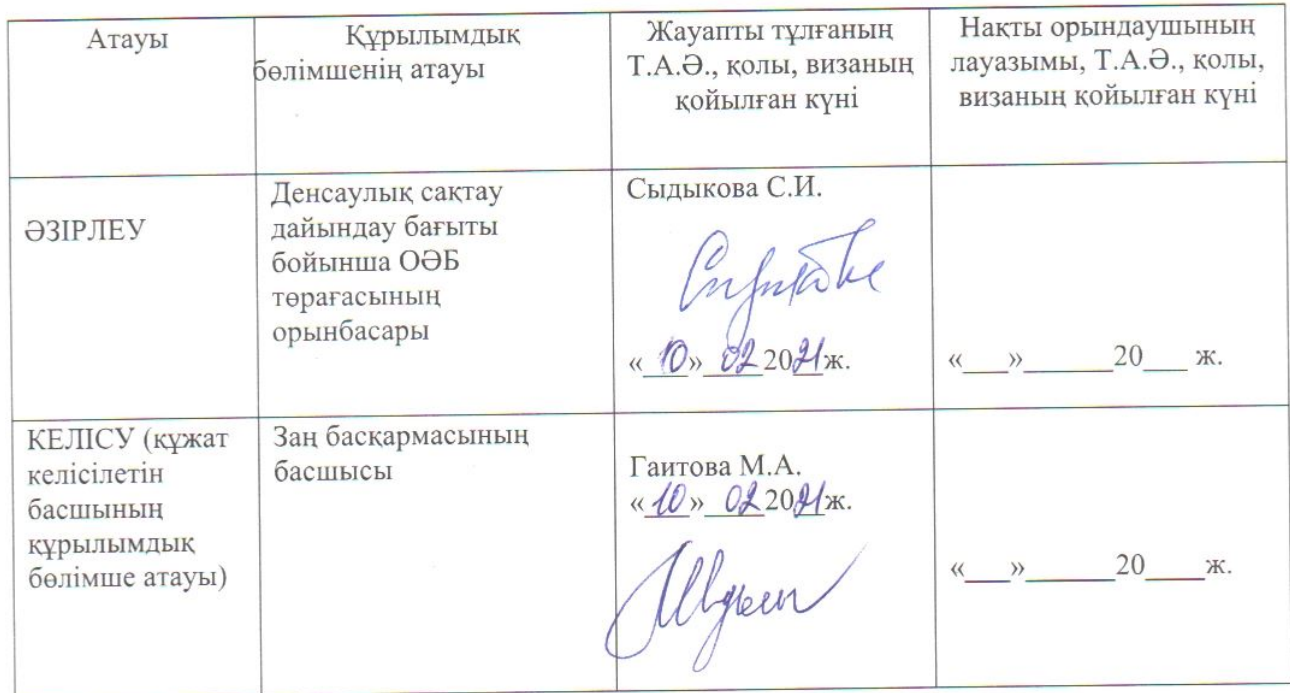 Атауы
Құрылымдық
бөлімшенің атауы
Жауапты тұлғаның
Т.А.Ә., қолы, визаның
қойылған күні
Нақты орындаушының
лауазымы, Т.А.Ә., қолы,
визаның қойылған күні
ӘЗІРЛЕУ
Денсаулық сақтау
дайындау бағыты
бойынша ОӘБ
төрағасының
орынбасары
Сыдыкова С.И.
«_10»__02 2021ж.
«___»______20___ ж.
КЕЛІСУ (құжат
келісілетін
басшының
құрылымдық
бөлімше атауы)
Заң басқармасының
басшысы
Гаитова М.А.
«_10_»__02 2021ж.
«___»______20____ж.